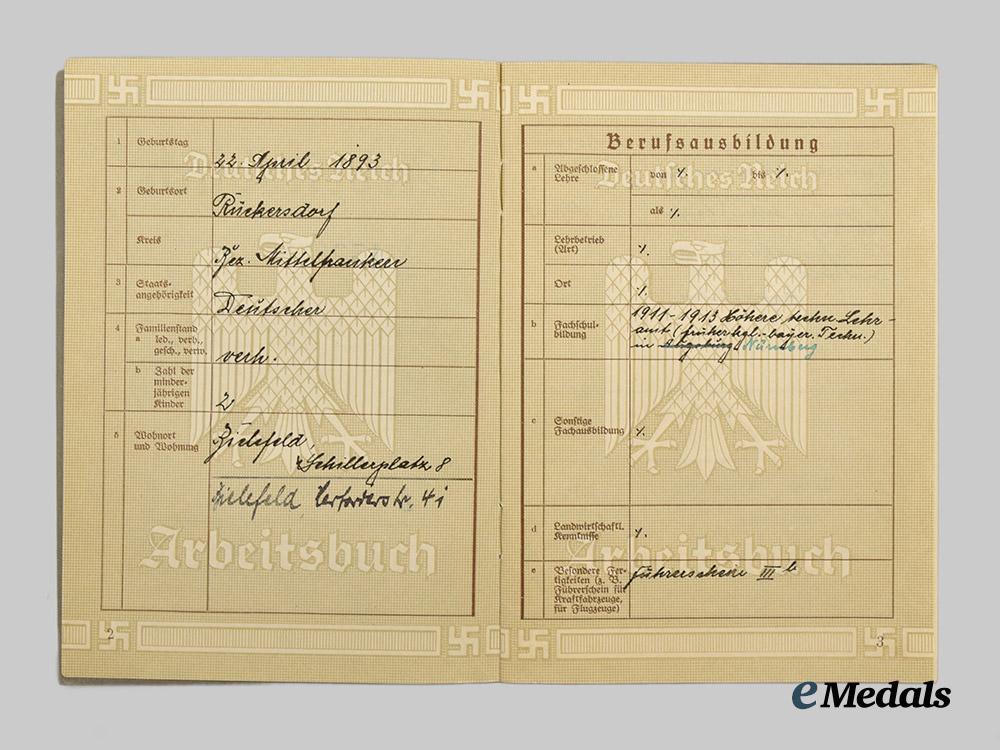 1 Geburtstag 22. April 1893
2 Geburtsort Rückersdorf
Kreis Bez. Mittelfranken
3 Staats-
angehörigkeit Deutscher
4 Familienstand
a led., verh.,
gesch., verw. verh.
b Zahl der
minder-
jährigen
Kinder 2
5 Wohnort
und Wohnung Bielefeld,
Schillerplatz 8
Bielefeld, Herforderstr. 41
Deutsches Reich
Arbeitsbuch
2
Berufsausbildung
a Abgeschlossene
Lehre von ·/. bis ·/.
als ·/.
Lehrbetrieb
(Art) ·/.
Ort ·/.
b Fachschul-
bildung 1911-1913 Höhere techn. Lehr-
amt (früher kgl.-bayer. Techn.)
in Augsburg Nürnberg
c Sonstige
Fachausbildung ·/.
d Landwirtschaftl.
Kenntnisse ·/.
e Besondere Fer-
tigkeiten (z. B.
Führerschein für
Kraftfahrzeuge,
für Flugzeuge) Führerschein III b
Deutsches Reich
Arbeitsbuch
3
eMedals